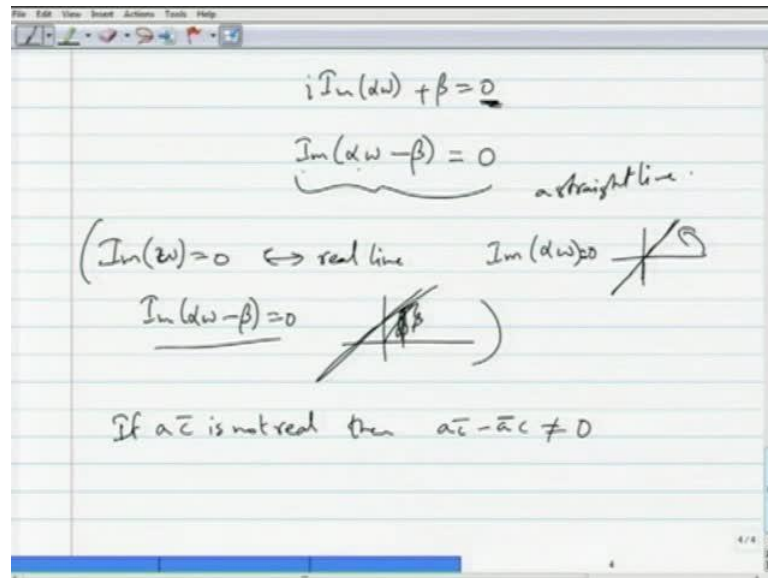 File Edit View Insert Actions Tools Help
i Im(αω) + β = 0
Im(αω − β) = 0
a straight line.
(Im(ω) = 0 ↔ real line Im(αω)=0
Im(αω − β) = 0 β )
If a c̄ is not real then a c̄ − ā c ≠ 0
4/4
4